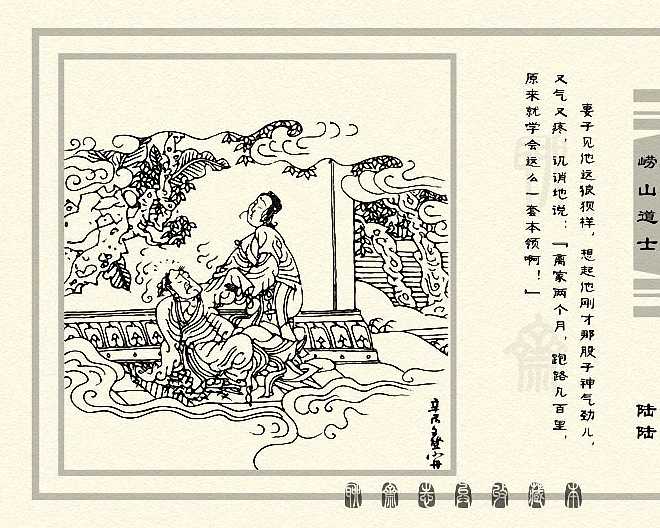 崂山道士
妻子见他这狼狈样，想起他刚才那股子神气劲儿，
又气又疼，讥诮地说：「离家两个月，跑路几百里，
原来就学会这么一套本领啊！」
陆陆